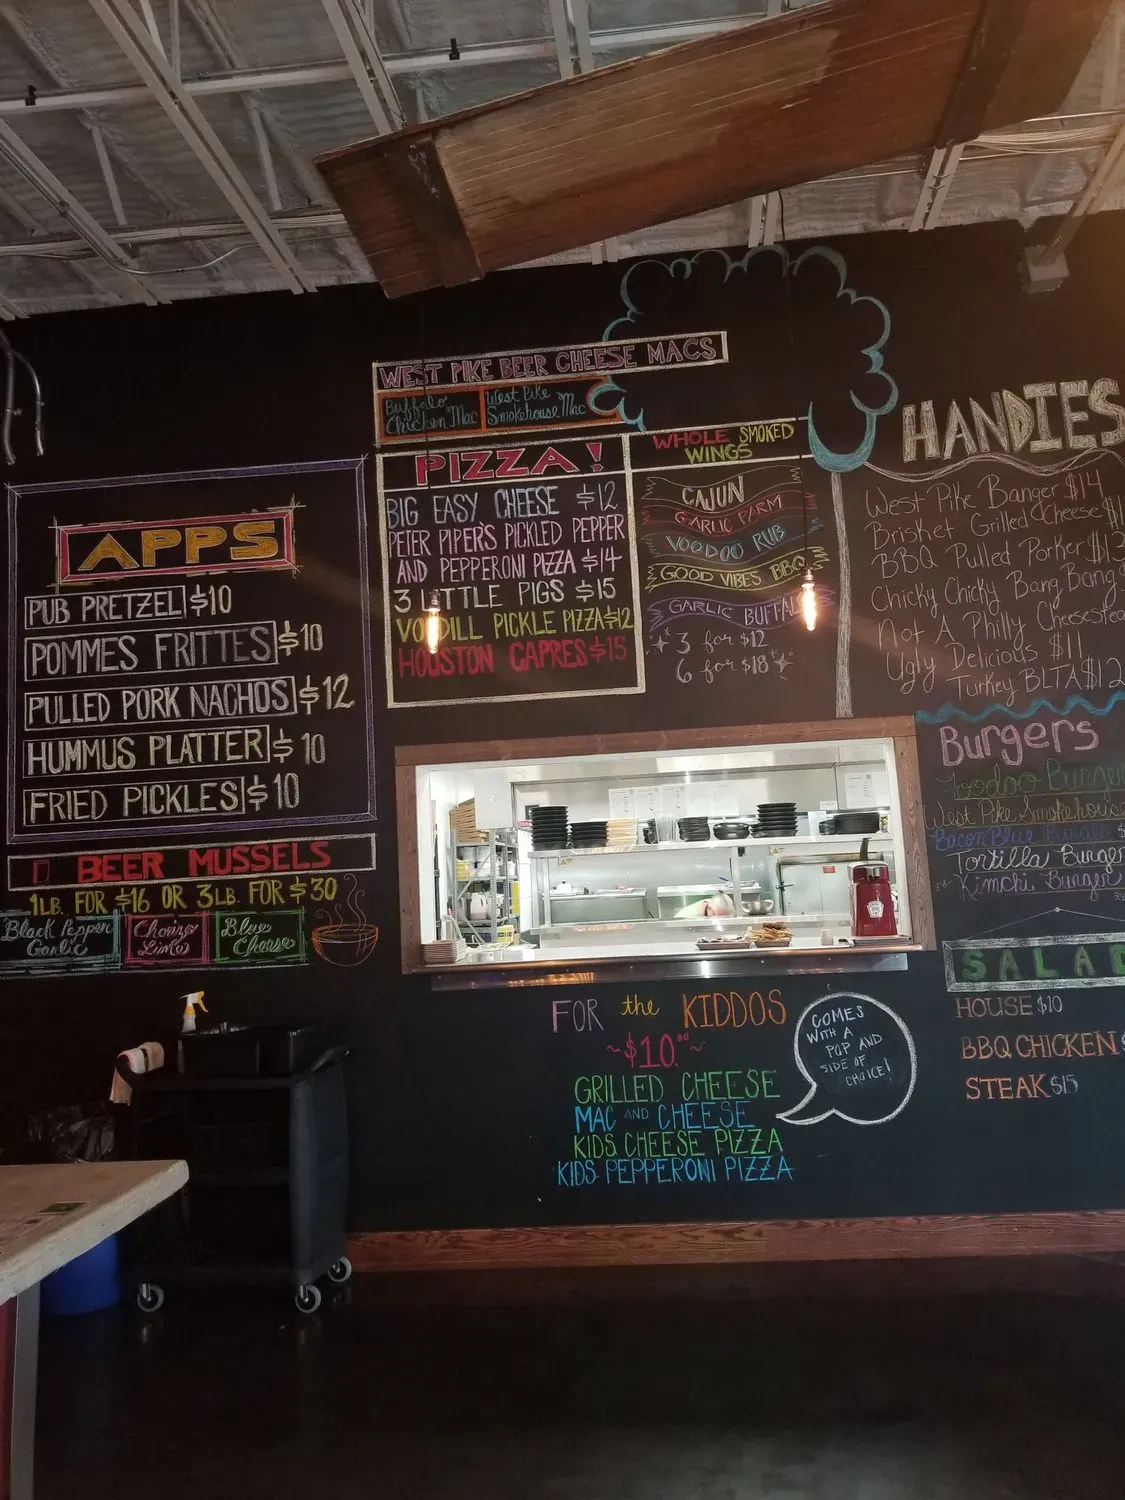 WEST PIKE BEER CHEESE MACS
Buffalo
Chicken Mac
West Pike
Smokehouse Mac
APPS
PUB PRETZEL $10
POMMES FRITTES $10
PULLED PORK NACHOS $12
HUMMUS PLATTER $10
FRIED PICKLES $10
BEER MUSSELS
1LB. FOR $16 OR 3LB. FOR $30
Black Pepper
Garlic
Lime
Blue
Cheese
PIZZA!
BIG EASY CHEESE $12
PETER PIPER'S PICKLED PEPPER
AND PEPPERONI PIZZA $14
3 LITTLE PIGS $15
DILL PICKLE PIZZA $12
HOUSTON CAPRES $15
WHOLE SMOKED
WINGS
CAJUN
GARLIC PARM
VOODOO RUB
GOOD VIBES BBQ
GARLIC BUFFAL
3 for $12
6 for $18
HANDIES
West Pike Banger $14
Brisket Grilled Cheese
BBQ Pulled Porker
Chicky Chicky Bang Bang
Not A Philly Cheesestea
Ugly Delicious $11
Turkey BLTA $12
Burgers
Voodoo Burger
West Pike Smokehouse
Bacon Blue Burger
Tortilla Burger
Kimchi Burger
SALAD
HOUSE $10
BBQ CHICKEN
STEAK $15
FOR the KIDDOS
~$10.00~
GRILLED CHEESE
MAC AND CHEESE
KIDS CHEESE PIZZA
KIDS PEPPERONI PIZZA
COMES
WITH A
POP AND
SIDE OF
CHOICE!